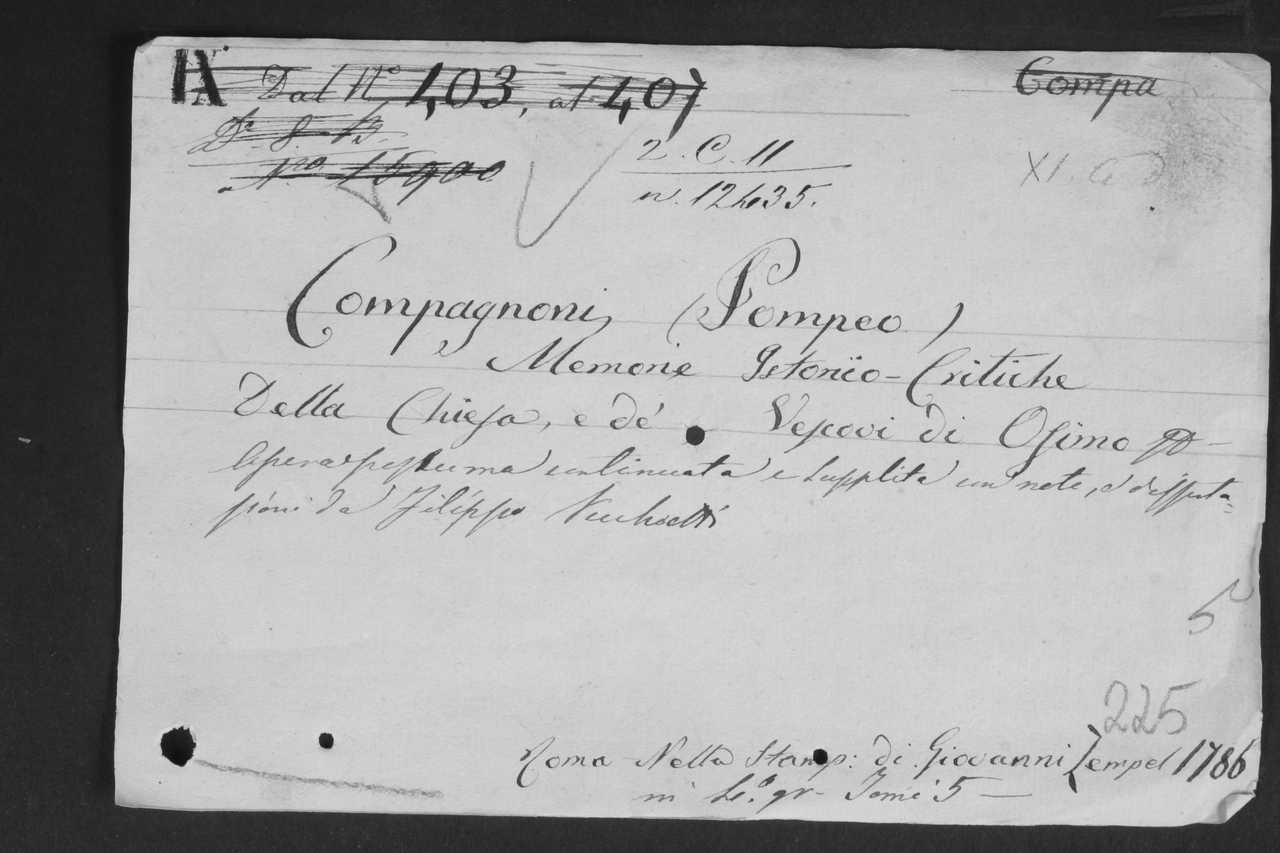 IX Dal N.º 403, al 407
Compa
2. C. 11
N.ro 15900
n. 12435.
XI.
Compagnoni, (Pompeo)
Memorie Istorico-Critiche
Della Chiesa, e de' Vescovi di Osimo
Opera postuma continuata e supplita con note, e disserta=
zioni da Filippo Vecchietti
5
225
Roma Nella Stamp: di Giovanni Zempel 1786
in 4.º gr Tomi 5